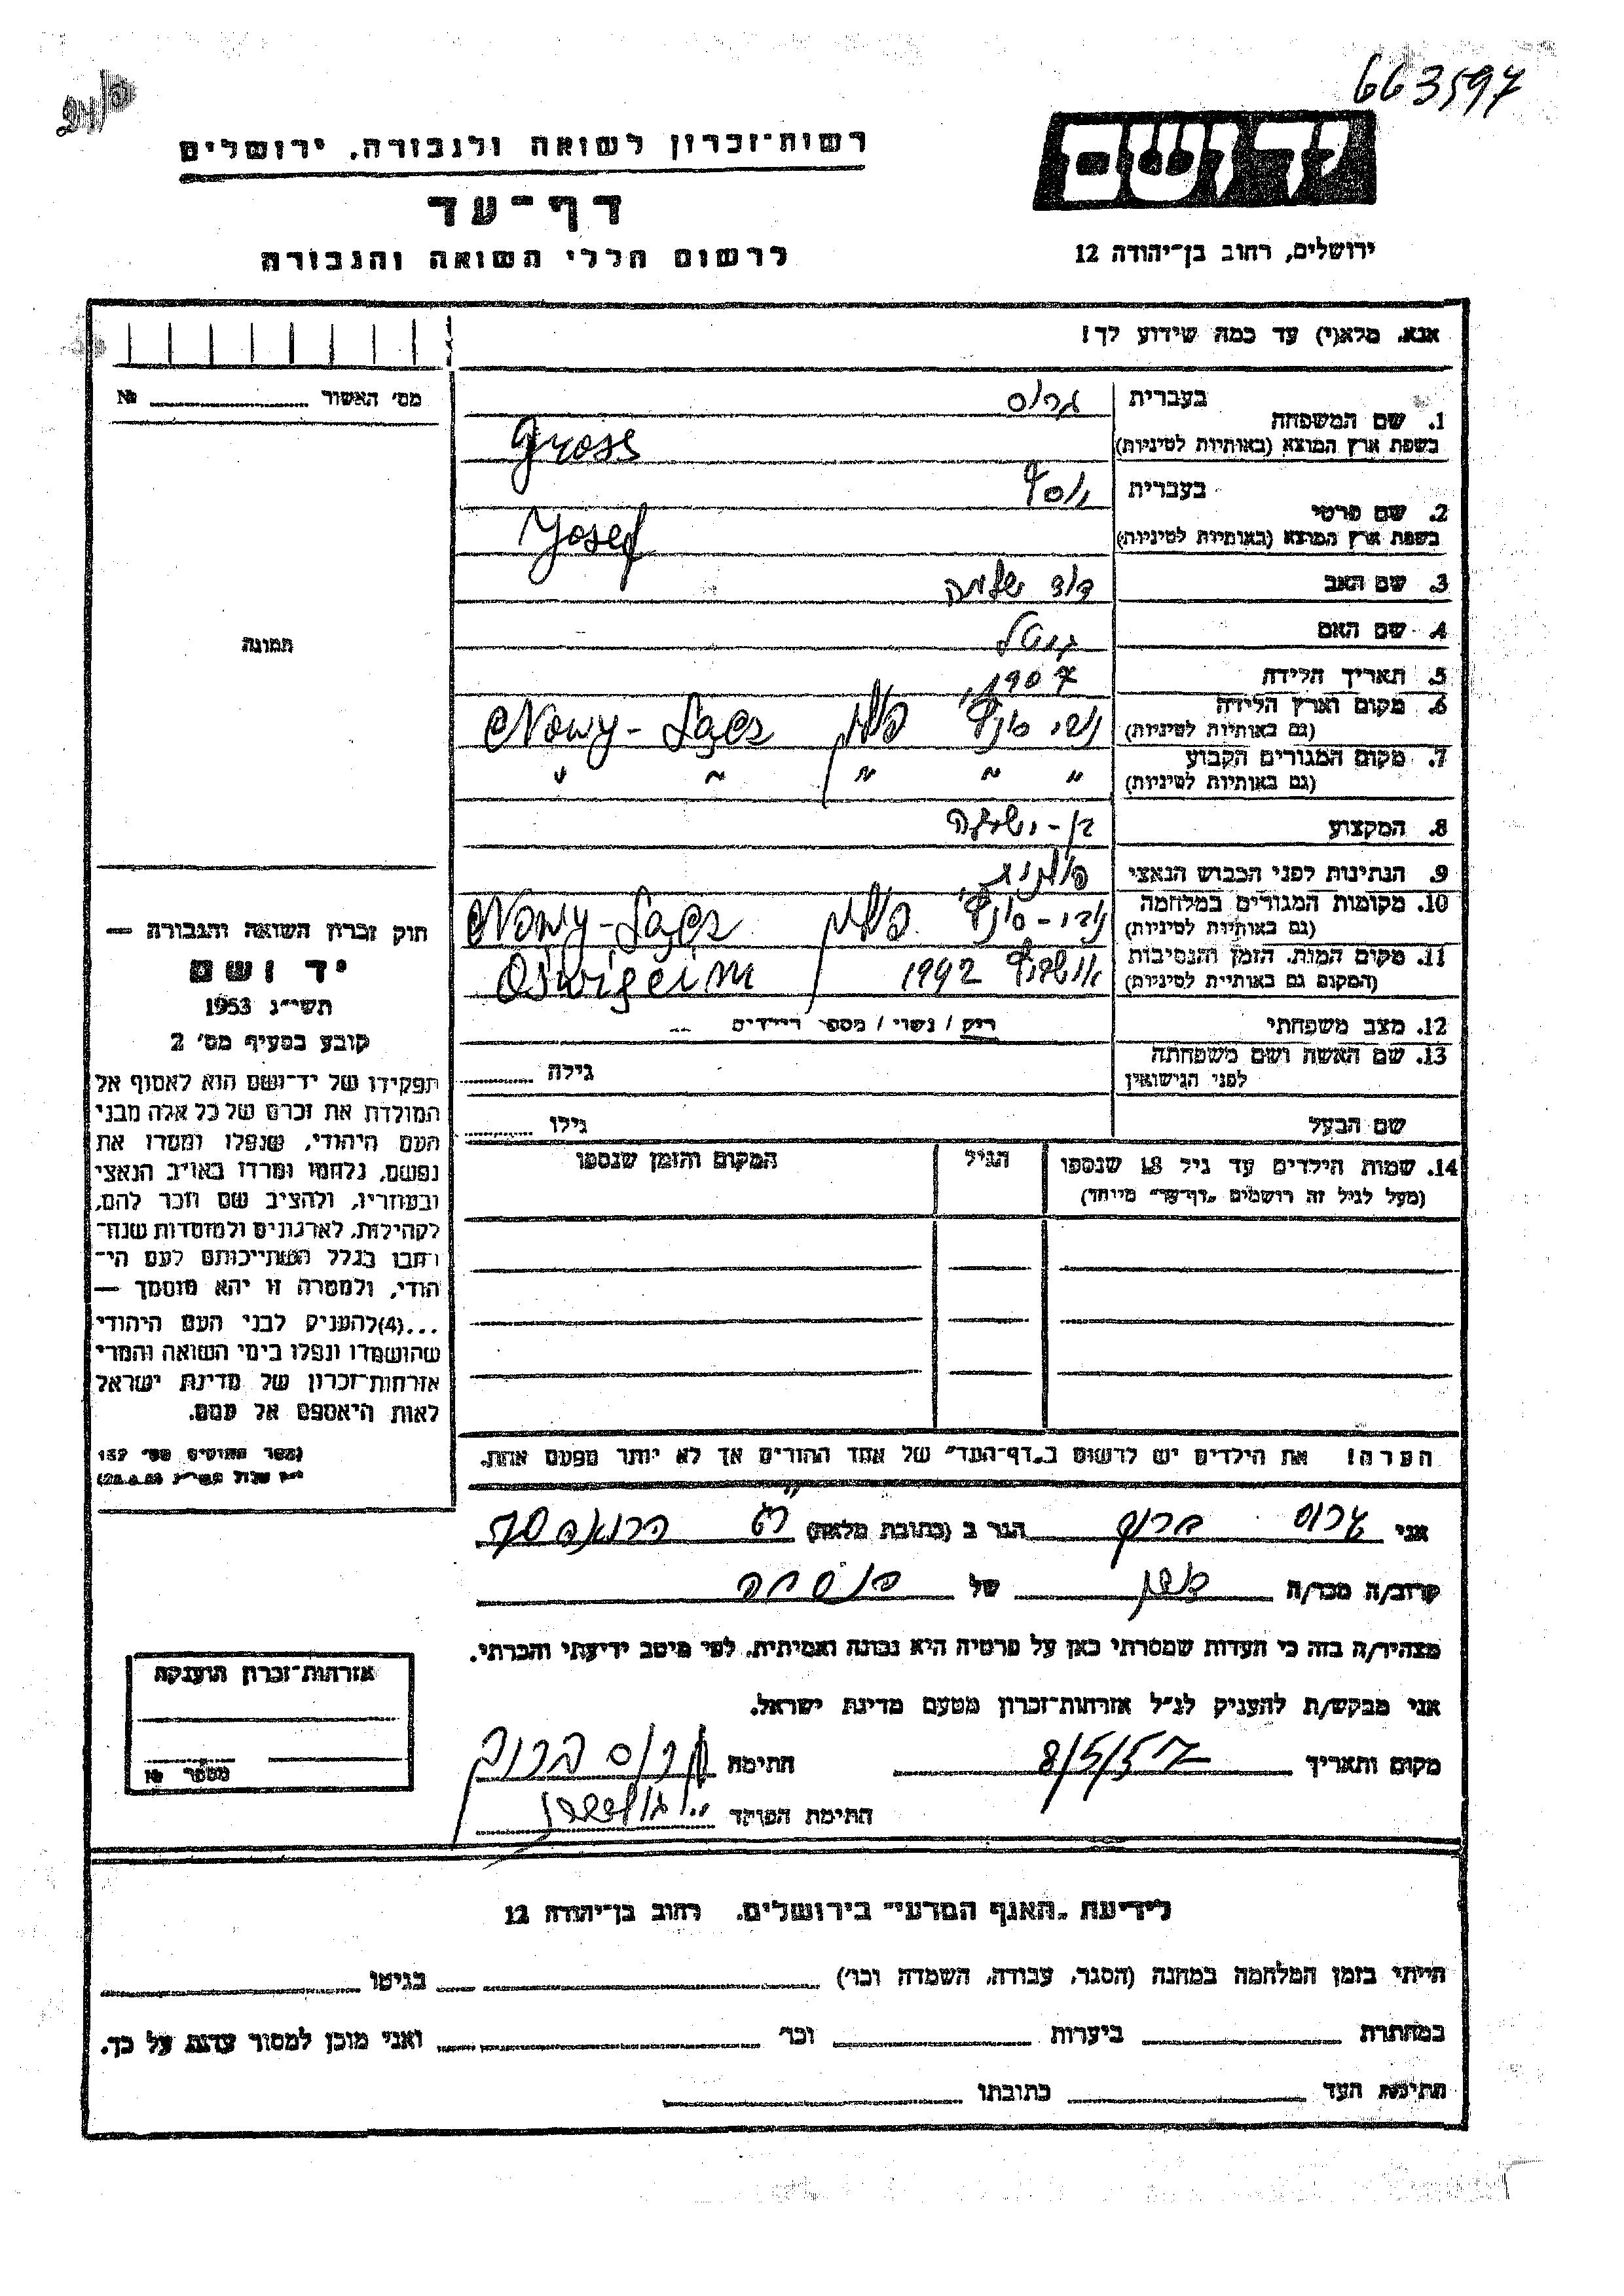 663597
רשות־זכרון לשואה ולגבורה, ירושלים
יד ושם
דף־עד
לרשום חללי השואה והגבורה
ירושלים, רחוב בן־יהודה 12
אנא, מלא(י) עד כמה שידוע לך!
מס' האשור № 
1. שם המשפחה
בעברית גרוס
בשפת ארץ המוצא (באותיות לטיניות) Gross
2. שם פרטי
בעברית יוסף
בשפת ארץ המוצא (באותיות לטיניות) Yosef
3. שם האב דוד שלמה
4. שם האם גיטל
5. תאריך הלידה 1907
6. מקום וארץ הלידה (גם באותיות לטיניות) פולין Nowy-
7. מקום המגורים הקבוע (גם באותיות לטיניות) " " " " "
8. המקצוע בן-ישיבה
9. הנתינות לפני הכבוש הנאצי פולנית
10. מקומות המגורים במלחמה (גם באותיות לטיניות) פולין Nowy-
11. מקום המות, הזמן והנסיבות (המקום גם באותיות לטיניות) 1942
12. מצב משפחתי רווק / נשוי / מספר הילדים
13. שם האשה ושם משפחתה לפני הנישואין גילה
שם הבעל גילו
14. שמות הילדים עד גיל 18 שנספו (מעל לגיל זה רושמים "דף־עד" מיוחד)
הגיל
המקום והזמן שנספו
הערה! את הילדים יש לרשום ב"דף־העד" של אחד ההורים אך לא יותר מפעם אחת.
תמונה
חוק זכרון השואה והגבורה —
יד ושם
תשי"ג 1953
קובע בסעיף מס' 2
תפקידו של יד־ושם הוא לאסוף אל
המולדת את זכרם של כל אלה מבני
העם היהודי, שנפלו ומסרו את
נפשם, נלחמו ומרדו באויב הנאצי
ובעוזריו, ולהציב שם וזכר להם,
לקהילות, לארגונים ולמוסדות שנח־
רחבו בגלל השתייכותם לעם הי־
הודי, ולמטרה זו יהא מוסמך —
...(4)להעניק לבני העם היהודי
שהושמדו ונפלו בימי השואה והמרי
אזרחות־זכרון של מדינת ישראל
לאות היאספם אל עמם.
אני גרוס ברוך הגר ב (כתובת מלאה)
קרוב/ה מכר/ה של
מצהיר/ה בזה כי העדות שמסרתי כאן על פרטיה היא נכונה ואמיתית, לפי מיטב ידיעתי והכרתי.
אני מבקש/ת להעניק לנ"ל אזרחות־זכרון מטעם מדינת ישראל.
מקום ותאריך 8/5/57 חתימה גרוס ברוך
חתימת הפוקד
אזרחות־זכרון הוענקה
מספר №
לידיעת "האגף המדעי" בירושלים, רחוב בן־יהודה 12
הייתי בזמן המלחמה במחנה (הסגר, עבודה, השמדה וכו') בגיטו
במחתרת ביערות וכו' ואני מוכן למסור עדות על כך.
חתימת העד כתובתו